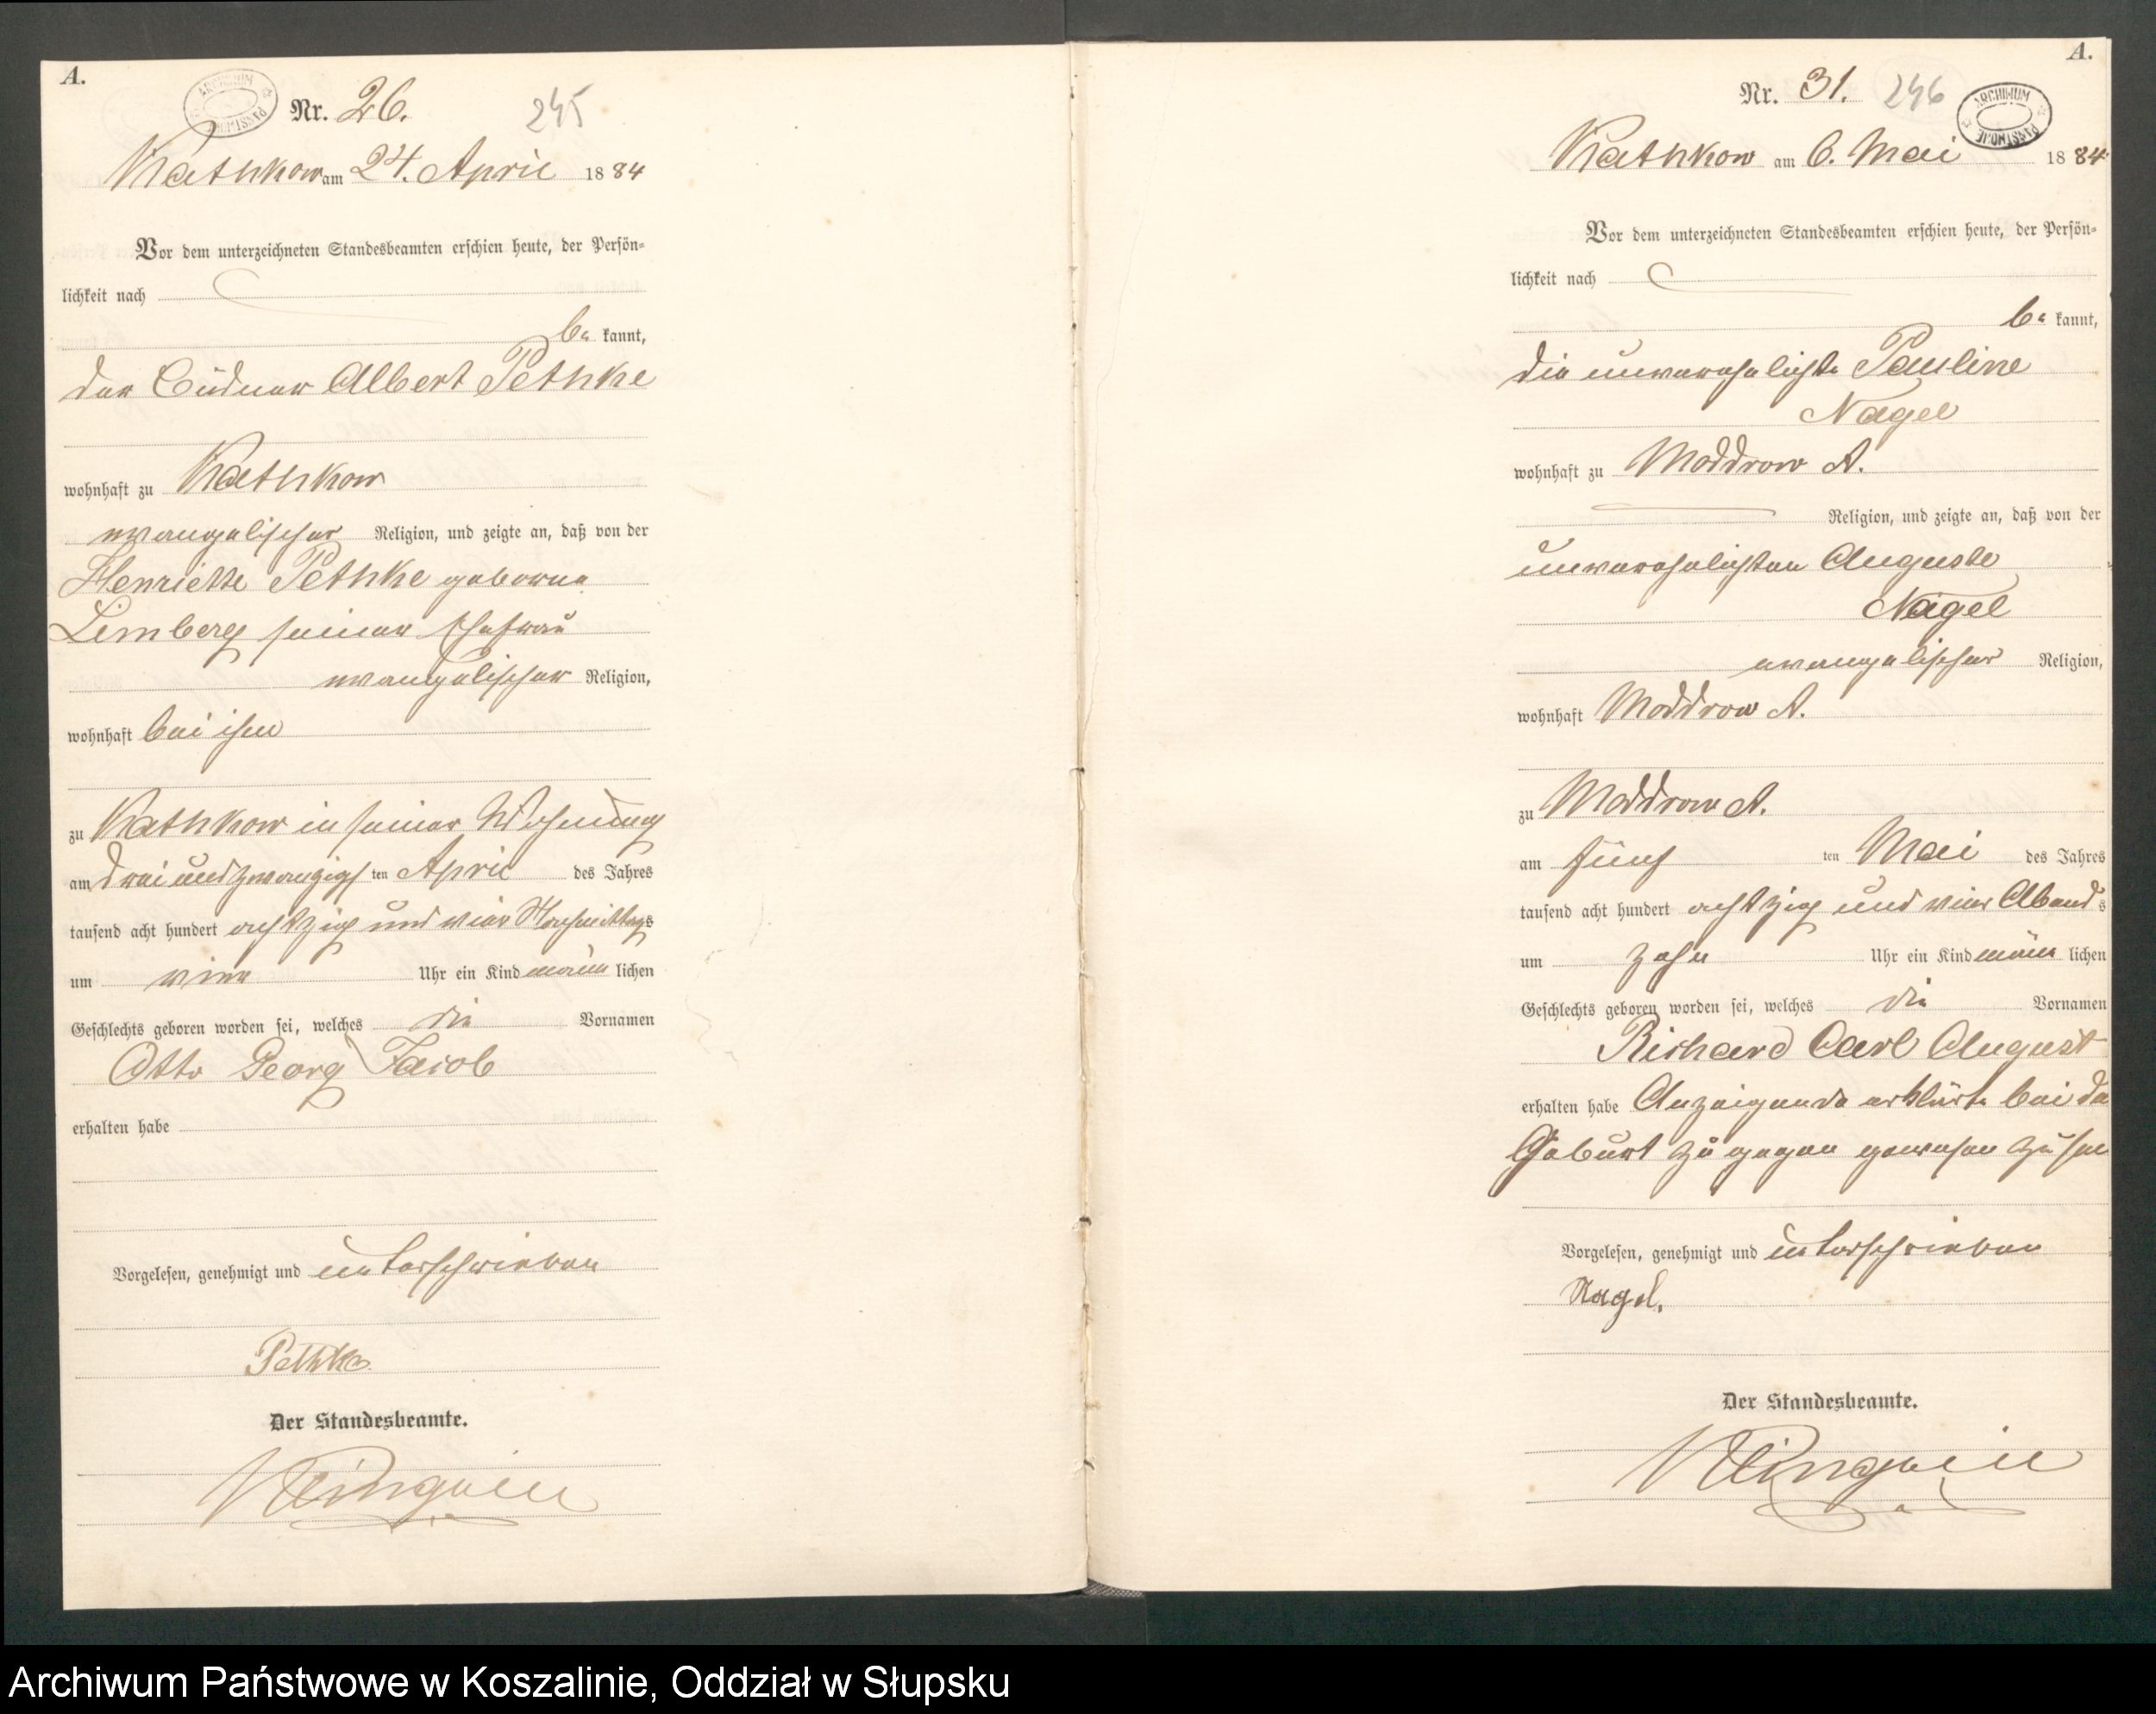 A.
ARCHIWUM PAŃSTWOWE
Nr. 26.
245
Kathkow am 24. April 1884
Vor dem unterzeichneten Standesbeamten erschien heute, der Persön-
lichkeit nach
be kannt,
der Büdner Albert Pethke
wohnhaft zu Kathkow
evangelischer Religion, und zeigte an, daß von der
Henriette Pethke geborne
Lemberg seiner Ehefrau
evangelischer Religion,
wohnhaft bei ihm
zu Kathkow in seiner Wohnung
am drei und zwanzigsten April des Jahres
tausend acht hundert achtzig und vier Nachmittags
um vier Uhr ein Kind männlichen
Geschlechts geboren worden sei, welches die Vornamen
Otto Georg Jacob
erhalten habe
Vorgelesen, genehmigt und unterschrieben
Pethke
Der Standesbeamte.
A.
Nr. 31. 246
ARCHIWUM PAŃSTWOWE
Kathkow am 6. Mai 1884
Vor dem unterzeichneten Standesbeamten erschien heute, der Persön-
lichkeit nach
be kannt,
die unverehelichte Pauline
Nagel
wohnhaft zu Moddrow A.
Religion, und zeigte an, daß von der
unverehelichten Auguste
Nagel
evangelischer Religion,
wohnhaft Moddrow A.
zu Moddrow A.
am fünf ten Mai des Jahres
tausend acht hundert achtzig und vier Abends
um zehn Uhr ein Kind männ lichen
Geschlechts geboren worden sei, welches die Vornamen
Richard Carl August
erhalten habe Anzeigende erklärte bei de
Geburt zugegen gewesen zu sei
Vorgelesen, genehmigt und unterschrieben
Nagel.
Der Standesbeamte.
Archiwum Państwowe w Koszalinie, Oddział w Słupsku